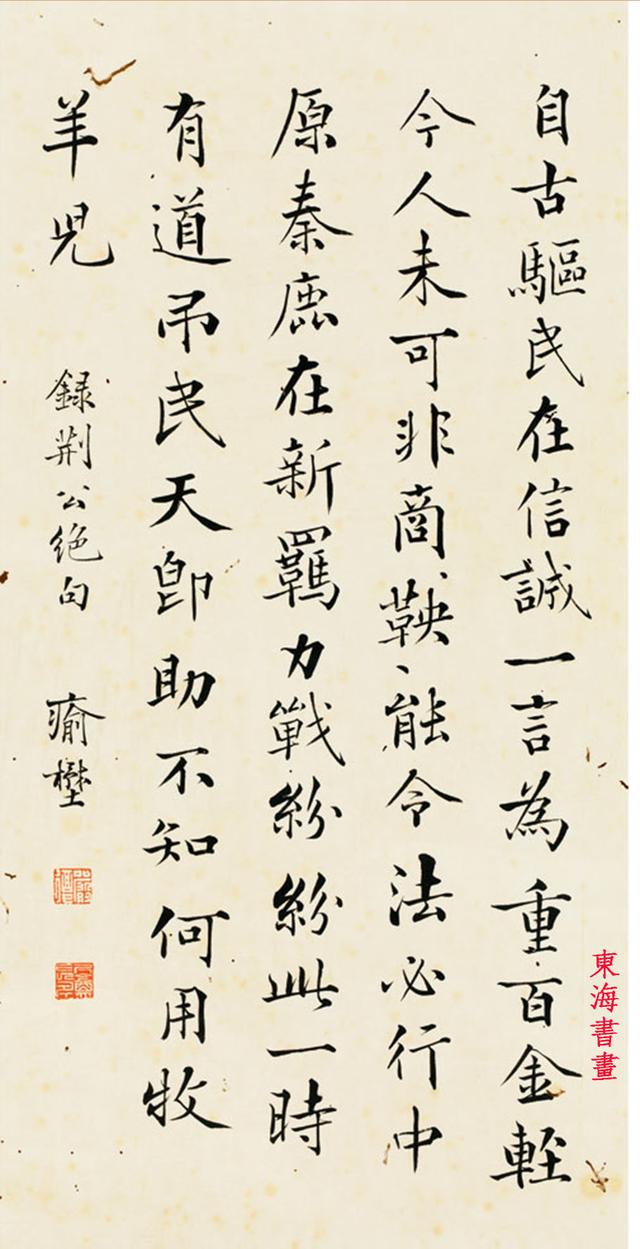 自古驅民在信誠一言為重百金輕
今人未可非商、鞅、能令法必行中
原秦鹿在新羈力戰紛紛此一時
有道吊民天即助不知何用牧
羊兒
錄荆公絕句 瘉壄
東海書畫